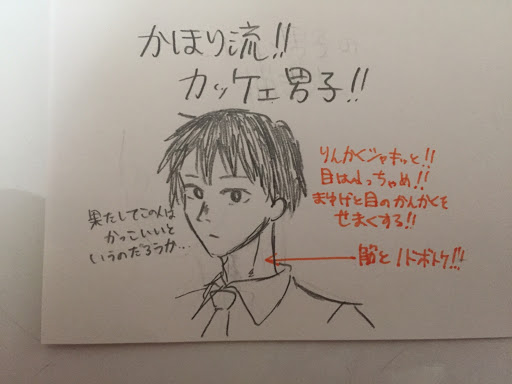 かほり流!!
カッケェ男子!!
りんかくシャキッと!!
目は小っちゃめ!!
まゆげと目のかんかくを
せまくする!!
果たしてこの人は
かっこいいと
いうのだろうか…
筋とノドボトケ!!!